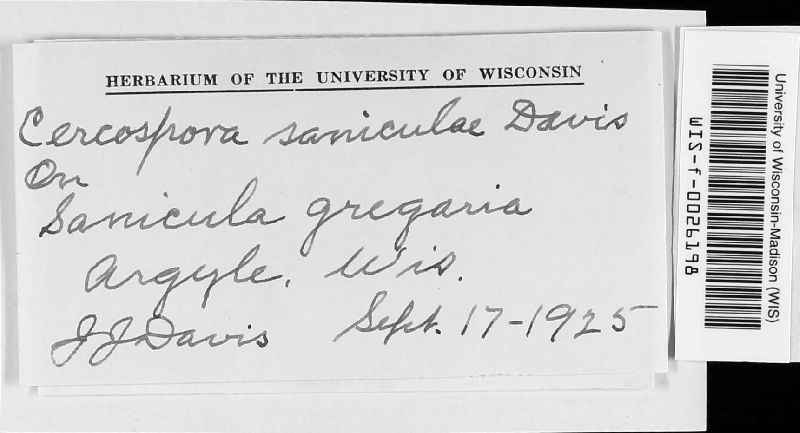 HERBARIUM OF THE UNIVERSITY OF WISCONSIN
Cercospora saniculae Davis
On
Sanicula gregaria
Argyle, Wis.
J J Davis Sept. 17-1925
University of Wisconsin-Madison (WIS)
WIS-f-0026198